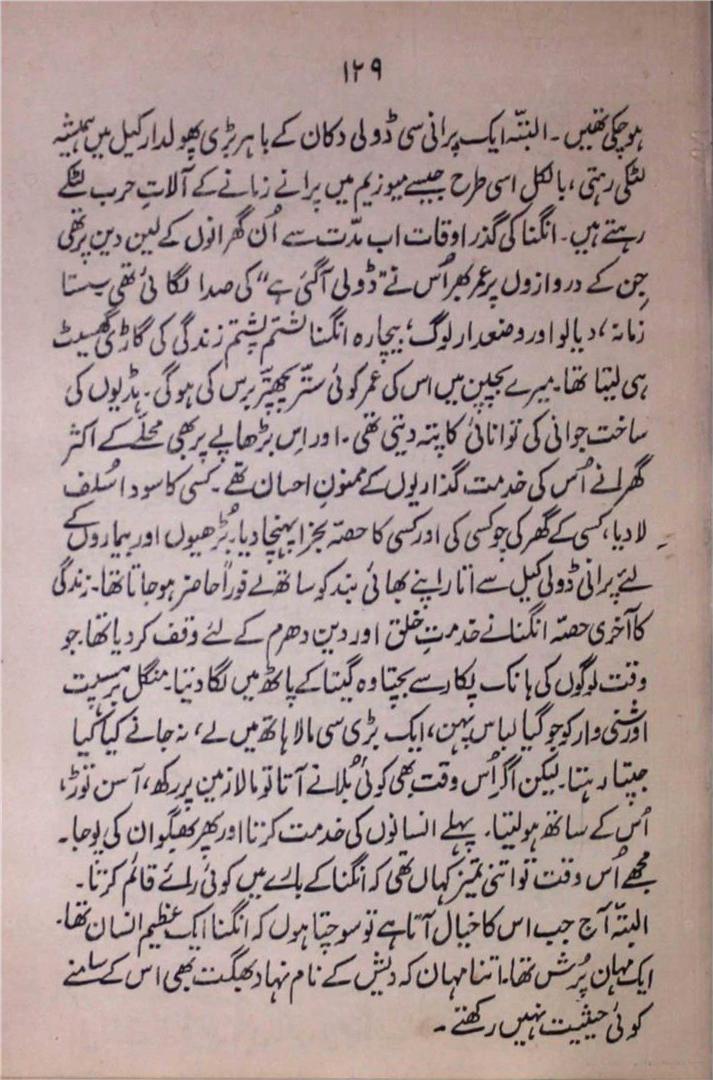 ۱۲۹
ہو چکی تھیں۔ البتّہ ایک پرانی سی ڈولی دکان کے باہر بڑی پھولدار کیل میں ہمیشہ
لٹکی رہتی، بالکل اسی طرح جیسے میوزیم میں پرانے زمانے کے آلاتِ حرب لٹکے
رہتے ہیں۔ انگنا کی گذر اوقات اب مدّت سے اُن گھرانوں کے لین دین پر تھی
جِن کے دروازوں پر عمر بھر اُس نے "ڈولی آگئی ہے" کی صدا لگائی تھی۔ سستا
زمانہ، دیالو اور وضعدار لوگ؛ بیچارہ انگنا لشتم پشتم زندگی کی گاڑی گھسیٹ
ہی لیتا تھا۔ میرے بچپن میں اس کی عمر کوئی ستّر پچھتّر برس کی ہوگی۔ ہڈیوں کی
ساخت جوانی کی توانائی کا پتہ دیتی تھی۔ اور اِس بڑھاپے پر بھی محلّے کے اکثر
گھرانے اُس کی خدمت گذاریوں کے ممنونِ احسان تھے۔ کسی کا سودا سُلف
لا دیا، کسی کے گھر کی جو کسی کی اور کسی کا حصّہ بخرا پہنچا دیا۔ بُڑھیوں اور بیماروں کے
لئے پرانی ڈولی کیل سے اتار اپنے بھائی بند کو ساتھ لے فوراً حاضر ہو جاتا تھا۔ زندگی
کا آخری حصّہ انگنا نے خدمتِ خلق اور دین دھرم کے لئے وقف کر دیا تھا۔ جو
وقت لوگوں کی ہانک پکار سے بچتا وہ گیتا کے پاٹھ میں لگا دیتا۔ منگل برہسپت
اور شنی وار کو جوگیا لباس پہن، ایک بڑی سی مالا ہاتھ میں لے، نہ جانے کیا کیا
جپتا رہتا۔ لیکن اگر اُس وقت بھی کوئی بُلانے آتا تو مالا زمین پر رکھ، آسن توڑ،
اُس کے ساتھ ہو لیتا۔ پہلے انسانوں کی خدمت کرتا اور پھر بھگوان کی پوجا۔
مجھے اُس وقت تو اتنی تمیز کہاں تھی کہ انگنا کے بارے میں کوئی رائے قائم کرتا۔
البتّہ آج جب اس کا خیال آتا ہے تو سوچتا ہوں کہ انگنا ایک عظیم انسان تھا۔
ایک مہان پُرش تھا۔ اتنا مہان کہ دیش کے نام نہاد بھگت بھی اس کے سامنے
کوئی حیثیت نہیں رکھتے۔